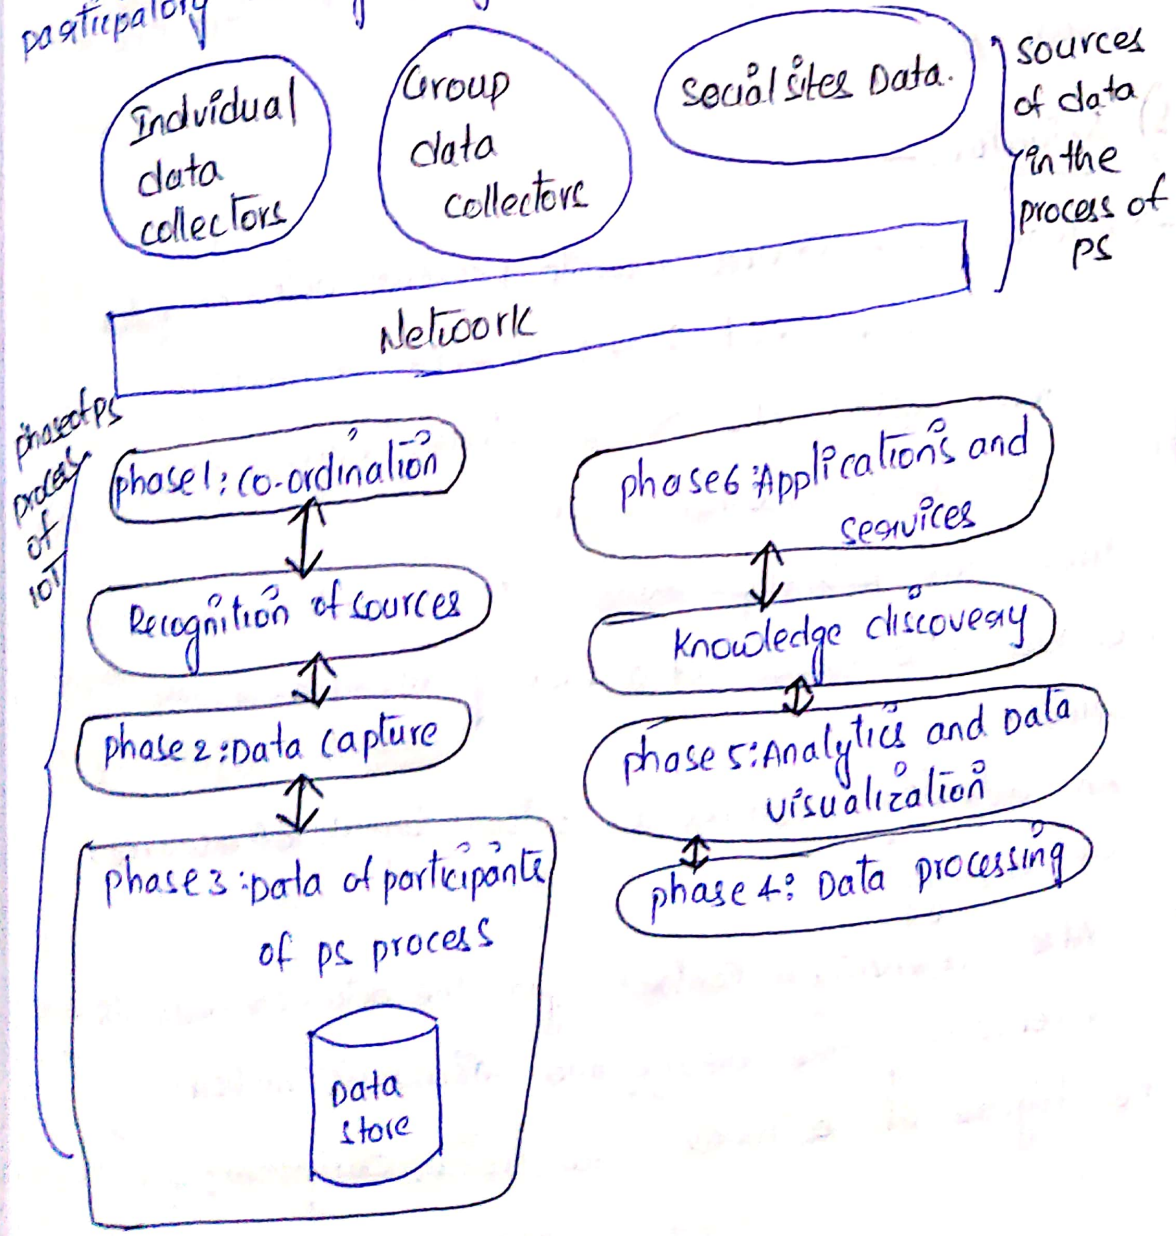 participatory
Indvidual
data
collectors
Group
data
collectors
Social sites Data.
sources
of data
in the
process of
PS
Network
phase of ps
process
of
IOT
phase1: co-ordination
Recognition of sources
phase 2: Data capture
phase 3: Data of participants
of ps process
Data
store
phase 6: Applications and
services
knowledge discovery
phase 5: Analytics and Data
visualization
phase 4: Data processing